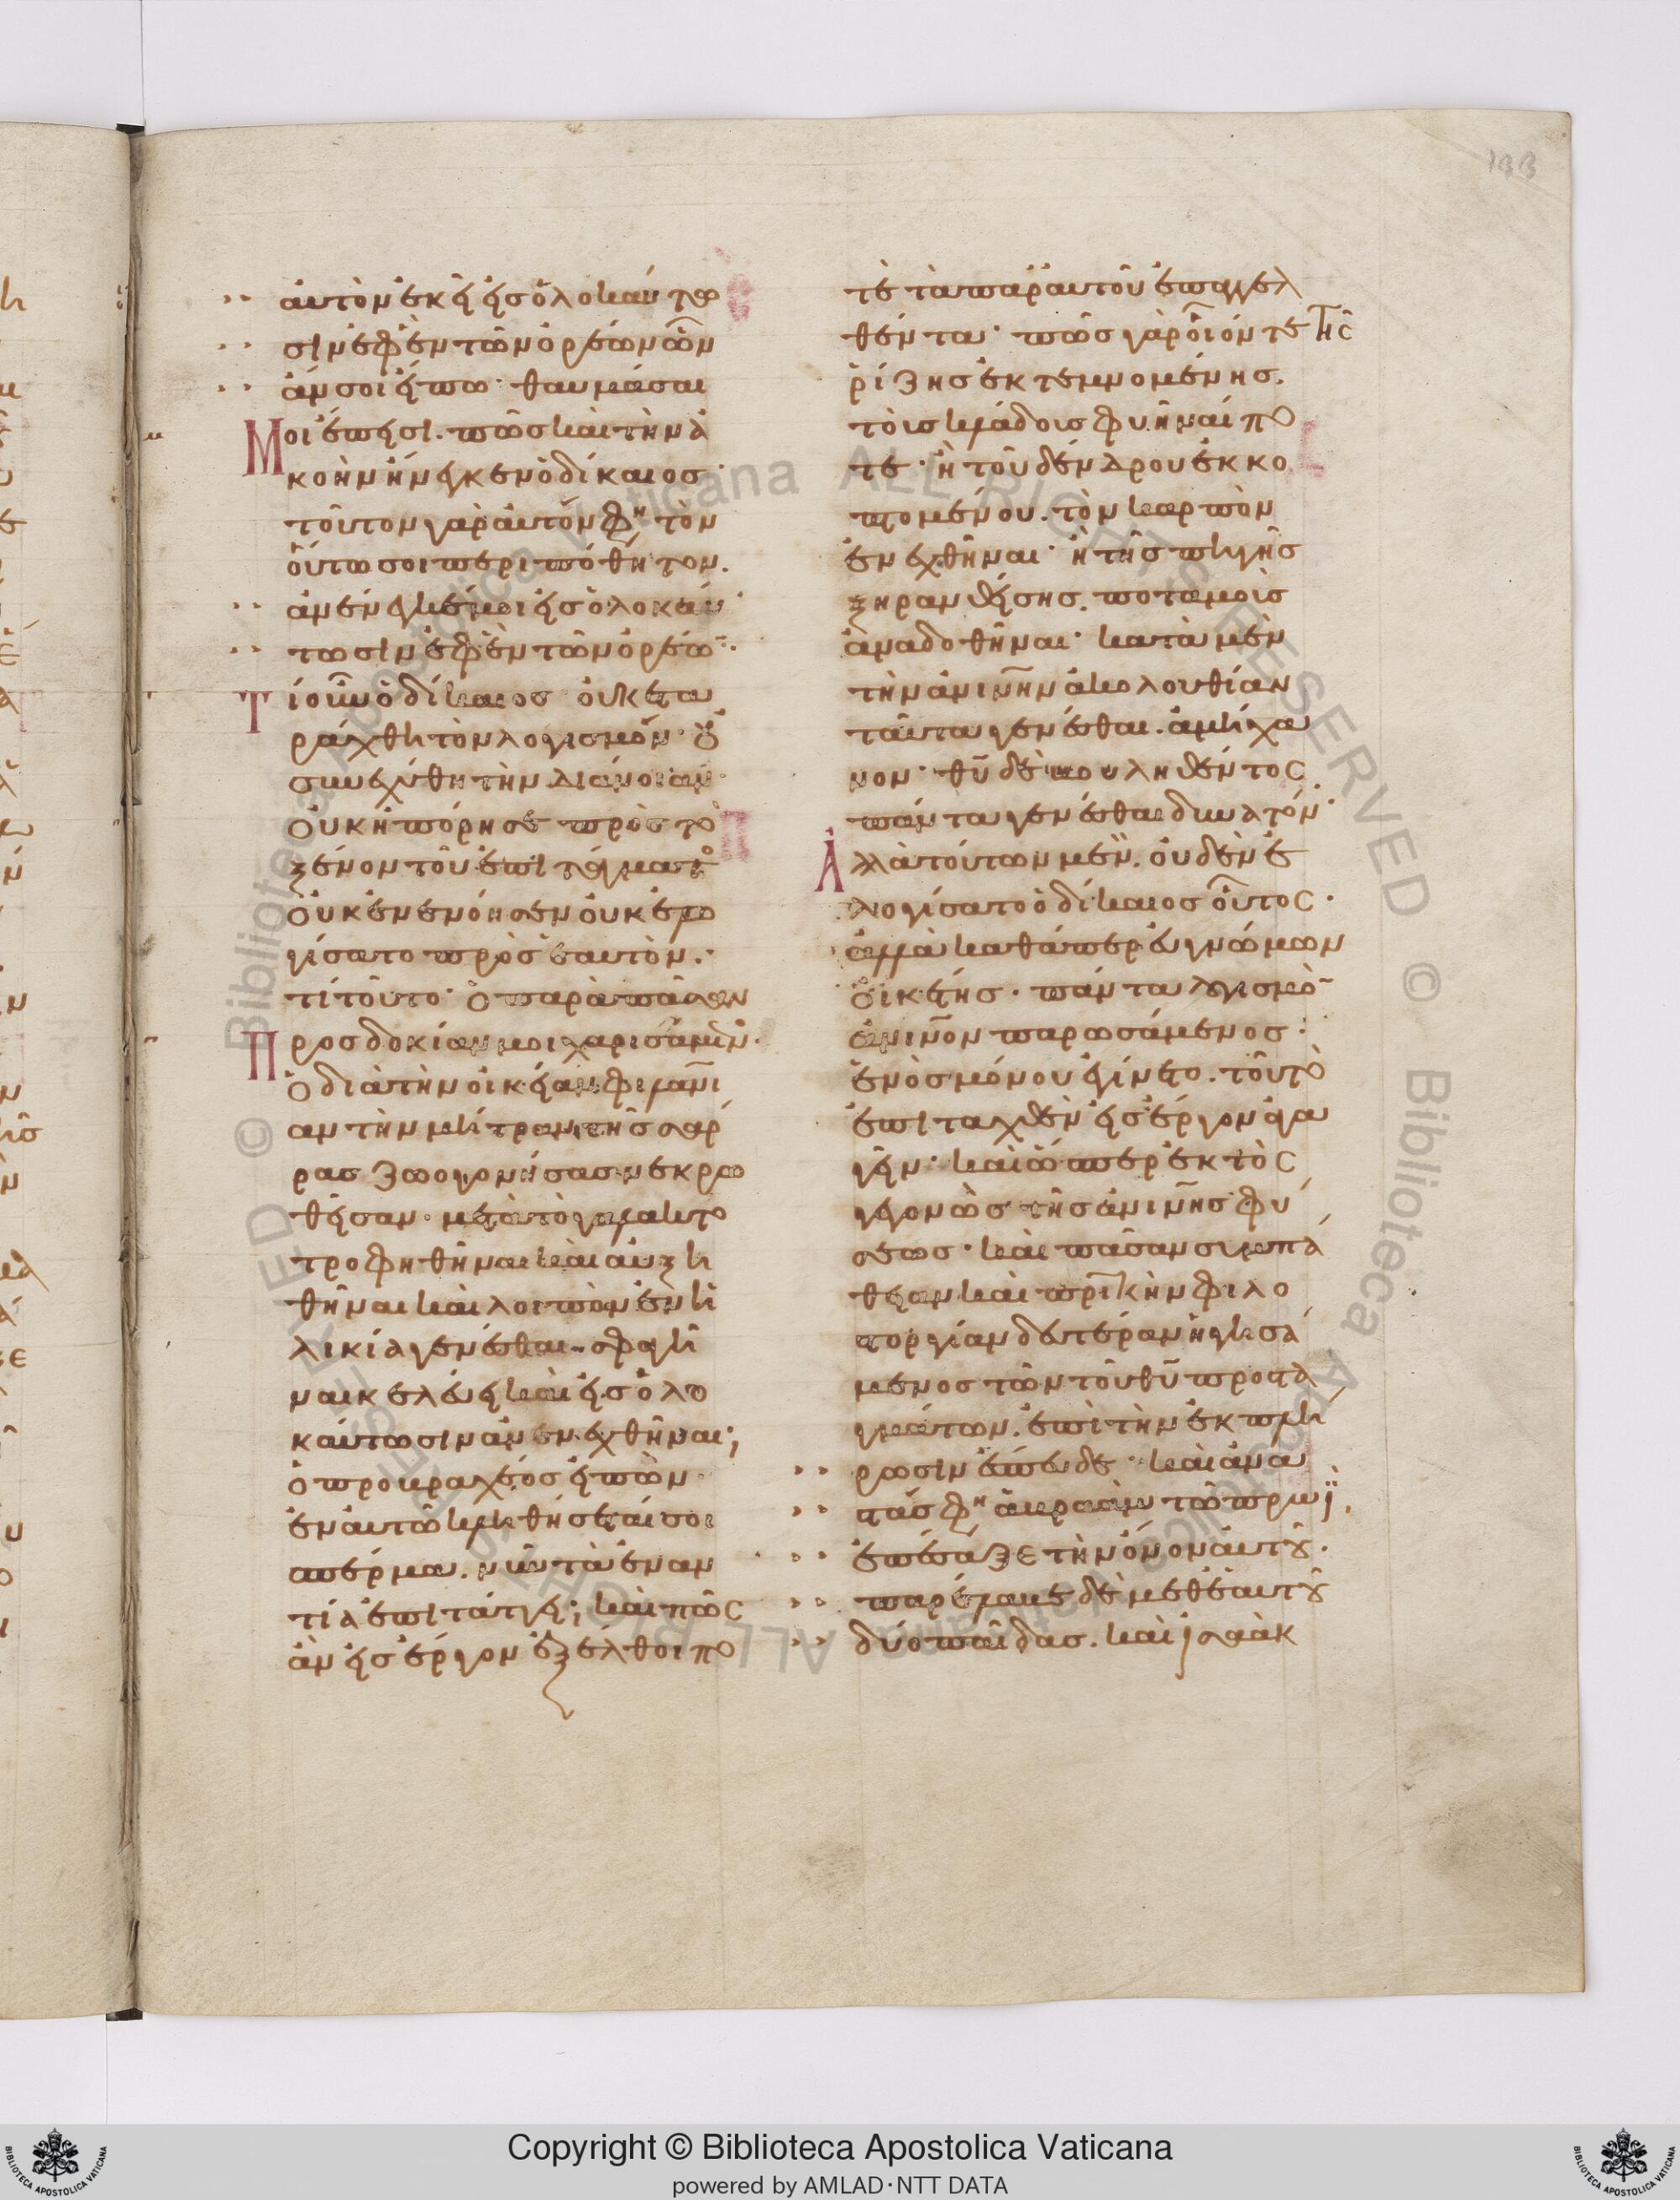 133
αὐτὸν ἐκεῖ εἰς ὁλοκάυτω
σιν ἐφ' ἓν τῶν ὀρέων ὧν
ἄν σοι εἴπω· θαυμάσαι
Μοι ἔπεισι. πῶς καὶ τὴν ἀ
κοὴν ἤνεγκεν ὁ δίκαιος·
τοῦτον γὰρ αὐτόν φη τὸν
οὕτω σοι περιπόθητον.
ἀνένεγκέ μοι εἰς ὁλοκάυ
τωσιν ἐφ' ἓν τῶν ὀρέω̅·
Τί οὖν ὁ δίκαιος οὐκ ἐτα
ράχθη τὸν λογισμόν· οὐ
συνεχύθη τὴν διάνοιαν·
οὐκ ἠπόρησε πρὸς τὸ
ξένον τοῦ ἐπιτάγματος
οὐκ ἐνενόησεν οὐκ ἐλο
γίσατο πρὸς ἑαυτὸν·
τί τοῦτο· ὁ παρὰ πᾶσαν
Προσδοκίαν μοι χαρισάμενος·
ὁ διὰ τὴν οἰκείαν φιλανι
αν τὴν μήτραν τῆς σάρ
ρας ζωογονήσας νεκρω
θεῖσαν· μετὰ τὸ γαλακτο
τροφηθῆναι καὶ αὐξη
θῆναι καὶ λοιπὸν ἐν ἡ
λικία γενέσθαι· σφαγῆ
ναι κελεύει καὶ εἰς ὁλο
καύτωσιν ἀνενεχθῆναι;
ὁ προβραχέος εἰπὼν·
ἐν αὐτῷ κληθήσεταί σοι
σπέρμα. νῦν τὰ ἐναν
τία ἐπιτάττει; καὶ πῶς
ἂν εἰς ἔργον ἐξέλθοι πο
τὲ τὰ παρ' αὐτοῦ ἐπαγγελ
θέντα· πῶς γὰρ οἷόν τε τῆς
ῥίζης ἐκτεμνομένης.
τοὺς κλάδους φυῆναί πο
τε· ἢ τοῦ δένδρου ἐκκο
πτομένου. τὸν καρπὸν
ἐνεχθῆναι· ἢ τῆς πηγῆς
ξηρανθείσης. ποταμοὺς
ἀναδοθῆναι· κατὰ μὲν
τὴν ἀνινην ἀκολουθίαν
ταῦτα γενέσθαι. ἀμήχα
νον· θυ δὲ βουληθέντος
πάντα γενέσθαι δυνατόν·
Ἀλλὰ τούτων μὲν. οὐδὲν ἐ
λογίσατο ὁ δίκαιος οὗτος·
ἀλλὰ καθάπερ εὐγνώμων
οἰκέτης. πάντα λογισμὸ
ἀνινον παρωσάμενος·
ἑνὸς μόνου γίνεται. τοῦ τὸ
ἐπιταχθὲν εἰς ἔργον ἀγα
γεῖν· καὶ ὥσπερ ἐκτὸς
γεγονὼς τῆς ἀνινης φύ
σεως· καὶ πᾶσαν συμπά
θειαν καὶ πρικὴν φιλο
στοργίαν δευτέραν ἡγησά
μενος τῶν τοῦ θυ προστα
γμάτων. ἐπὶ τὴν ἐκπλή
ρωσιν ἔσπευδε· καὶ ἀνα
στάς φη ἀβραὰμ τῶ πρωῒ.
ἐπέσαξε τὴν ὄνον αὐτοῦ.
παρέλαβε δὲ μεθ' ἑαυτοῦ
δύο παῖδας. καὶ ἰσαὰκ
Copyright © Biblioteca Apostolica Vaticana
powered by AMLAD·NTT DATA